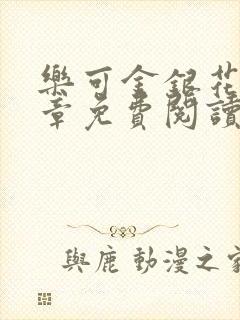 樂可金銀花
章免費閱讀
與鹿 動漫之家